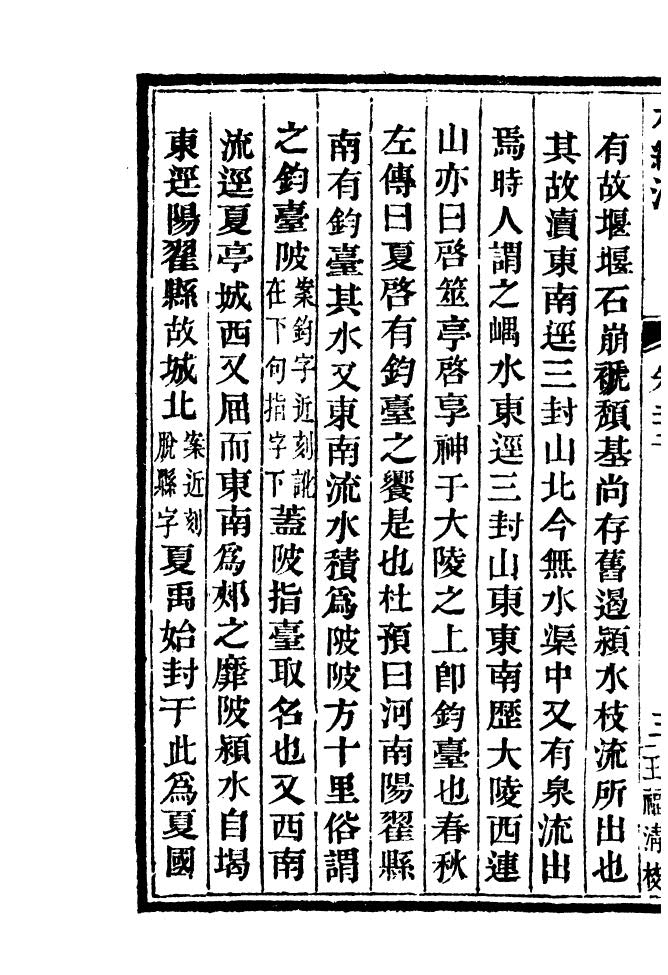 有故堰堰石崩褫頹基尚存舊遏潁水枝流所出也
其故瀆東南逕三封山北今無水渠中又有泉流出
焉時人謂之嵎水東逕三封山東東南歷大陵西連
山亦曰啓筮亭啓享神于大陵之上卽鈞臺也春秋
左傳曰夏啓有鈞臺之饗是也杜預曰河南陽翟縣
南有鈞臺其水又東南流水積爲陂陂方十里俗謂
之鈞臺陂案鈞字近刻訛在下句指字下蓋陂指臺取名也又西南
流逕夏亭城西又屈而東南爲郟之靡陂潁水自堨
東逕陽翟縣故城北案近刻脫縣字夏禹始封于此爲夏國